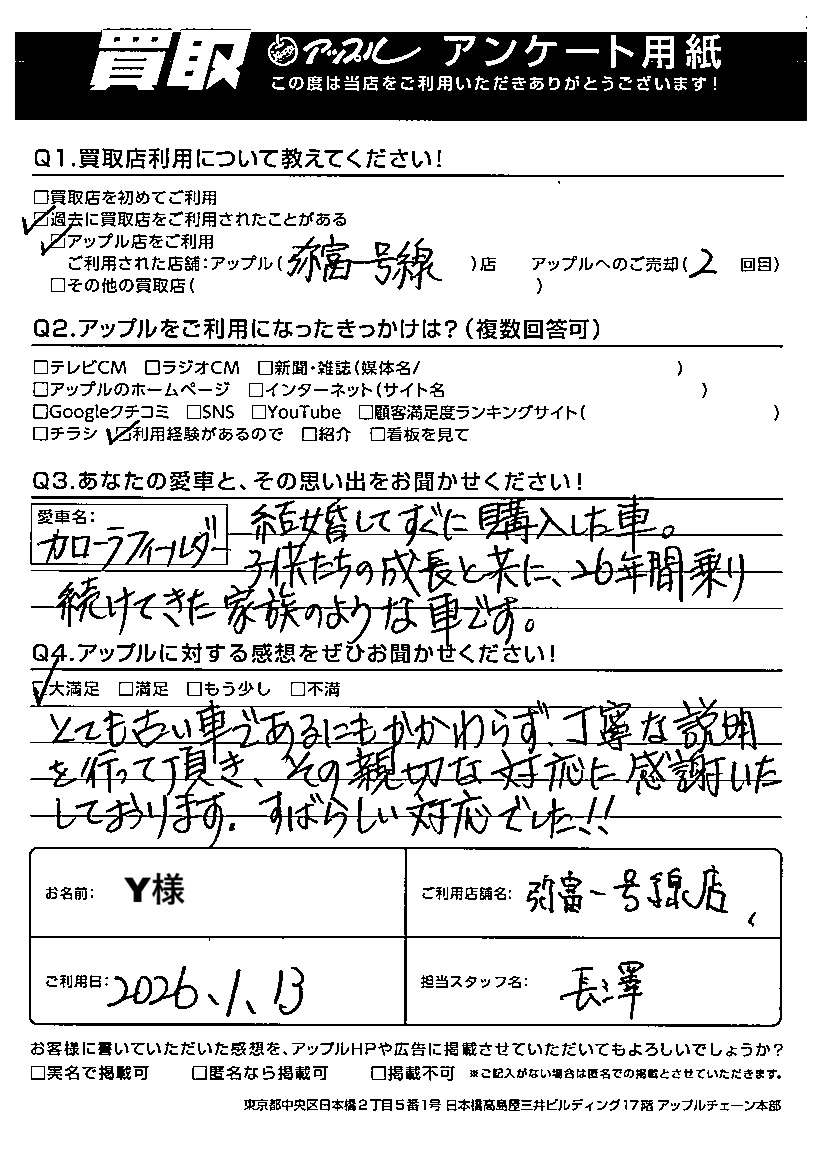 買取 アップル アンケート用紙
この度は当店をご利用いただきありがとうございます!
Q1.買取店利用について教えてください!
□買取店を初めてご利用
☑過去に買取店をご利用されたことがある
☑アップル店をご利用
ご利用された店舗:アップル(弥富一号線)店 アップルへのご売却(2回目)
□その他の買取店( )
Q2.アップルをご利用になったきっかけは?(複数回答可)
□テレビCM □ラジオCM □新聞・雑誌(媒体名/ )
□アップルのホームページ □インターネット(サイト名 )
□Googleクチコミ □SNS □YouTube □顧客満足度ランキングサイト( )
□チラシ ☑利用経験があるので □紹介 □看板を見て
Q3.あなたの愛車と、その思い出をお聞かせください!
愛車名:
カローラフィールダー
結婚してすぐに購入した車。
子供たちの成長と共に、26年間乗り
続けてきた家族のような車です。
Q4.アップルに対する感想をぜひお聞かせください!
☑大満足 □満足 □もう少し □不満
とても古い車であるにもかかわらず、丁寧な説明
を行って頂き、その親切な対応に感謝いた
しております。すばらしい対応でした!!
お名前: Y様 ご利用店舗名: 弥富一号線店
ご利用日: 2026、1、13 担当スタッフ名: 長澤
お客様に書いていただいた感想を、アップルHPや広告に掲載させていただいてもよろしいでしょうか?
□実名で掲載可 □匿名なら掲載可 □掲載不可 ※ご記入がない場合は匿名での掲載とさせていただきます。
東京都中央区日本橋2丁目5番1号 日本橋高島屋三井ビルディング17階 アップルチェーン本部